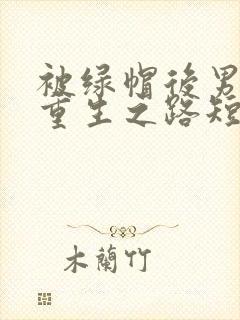 被绿帽後男
重生之路短
木蘭竹